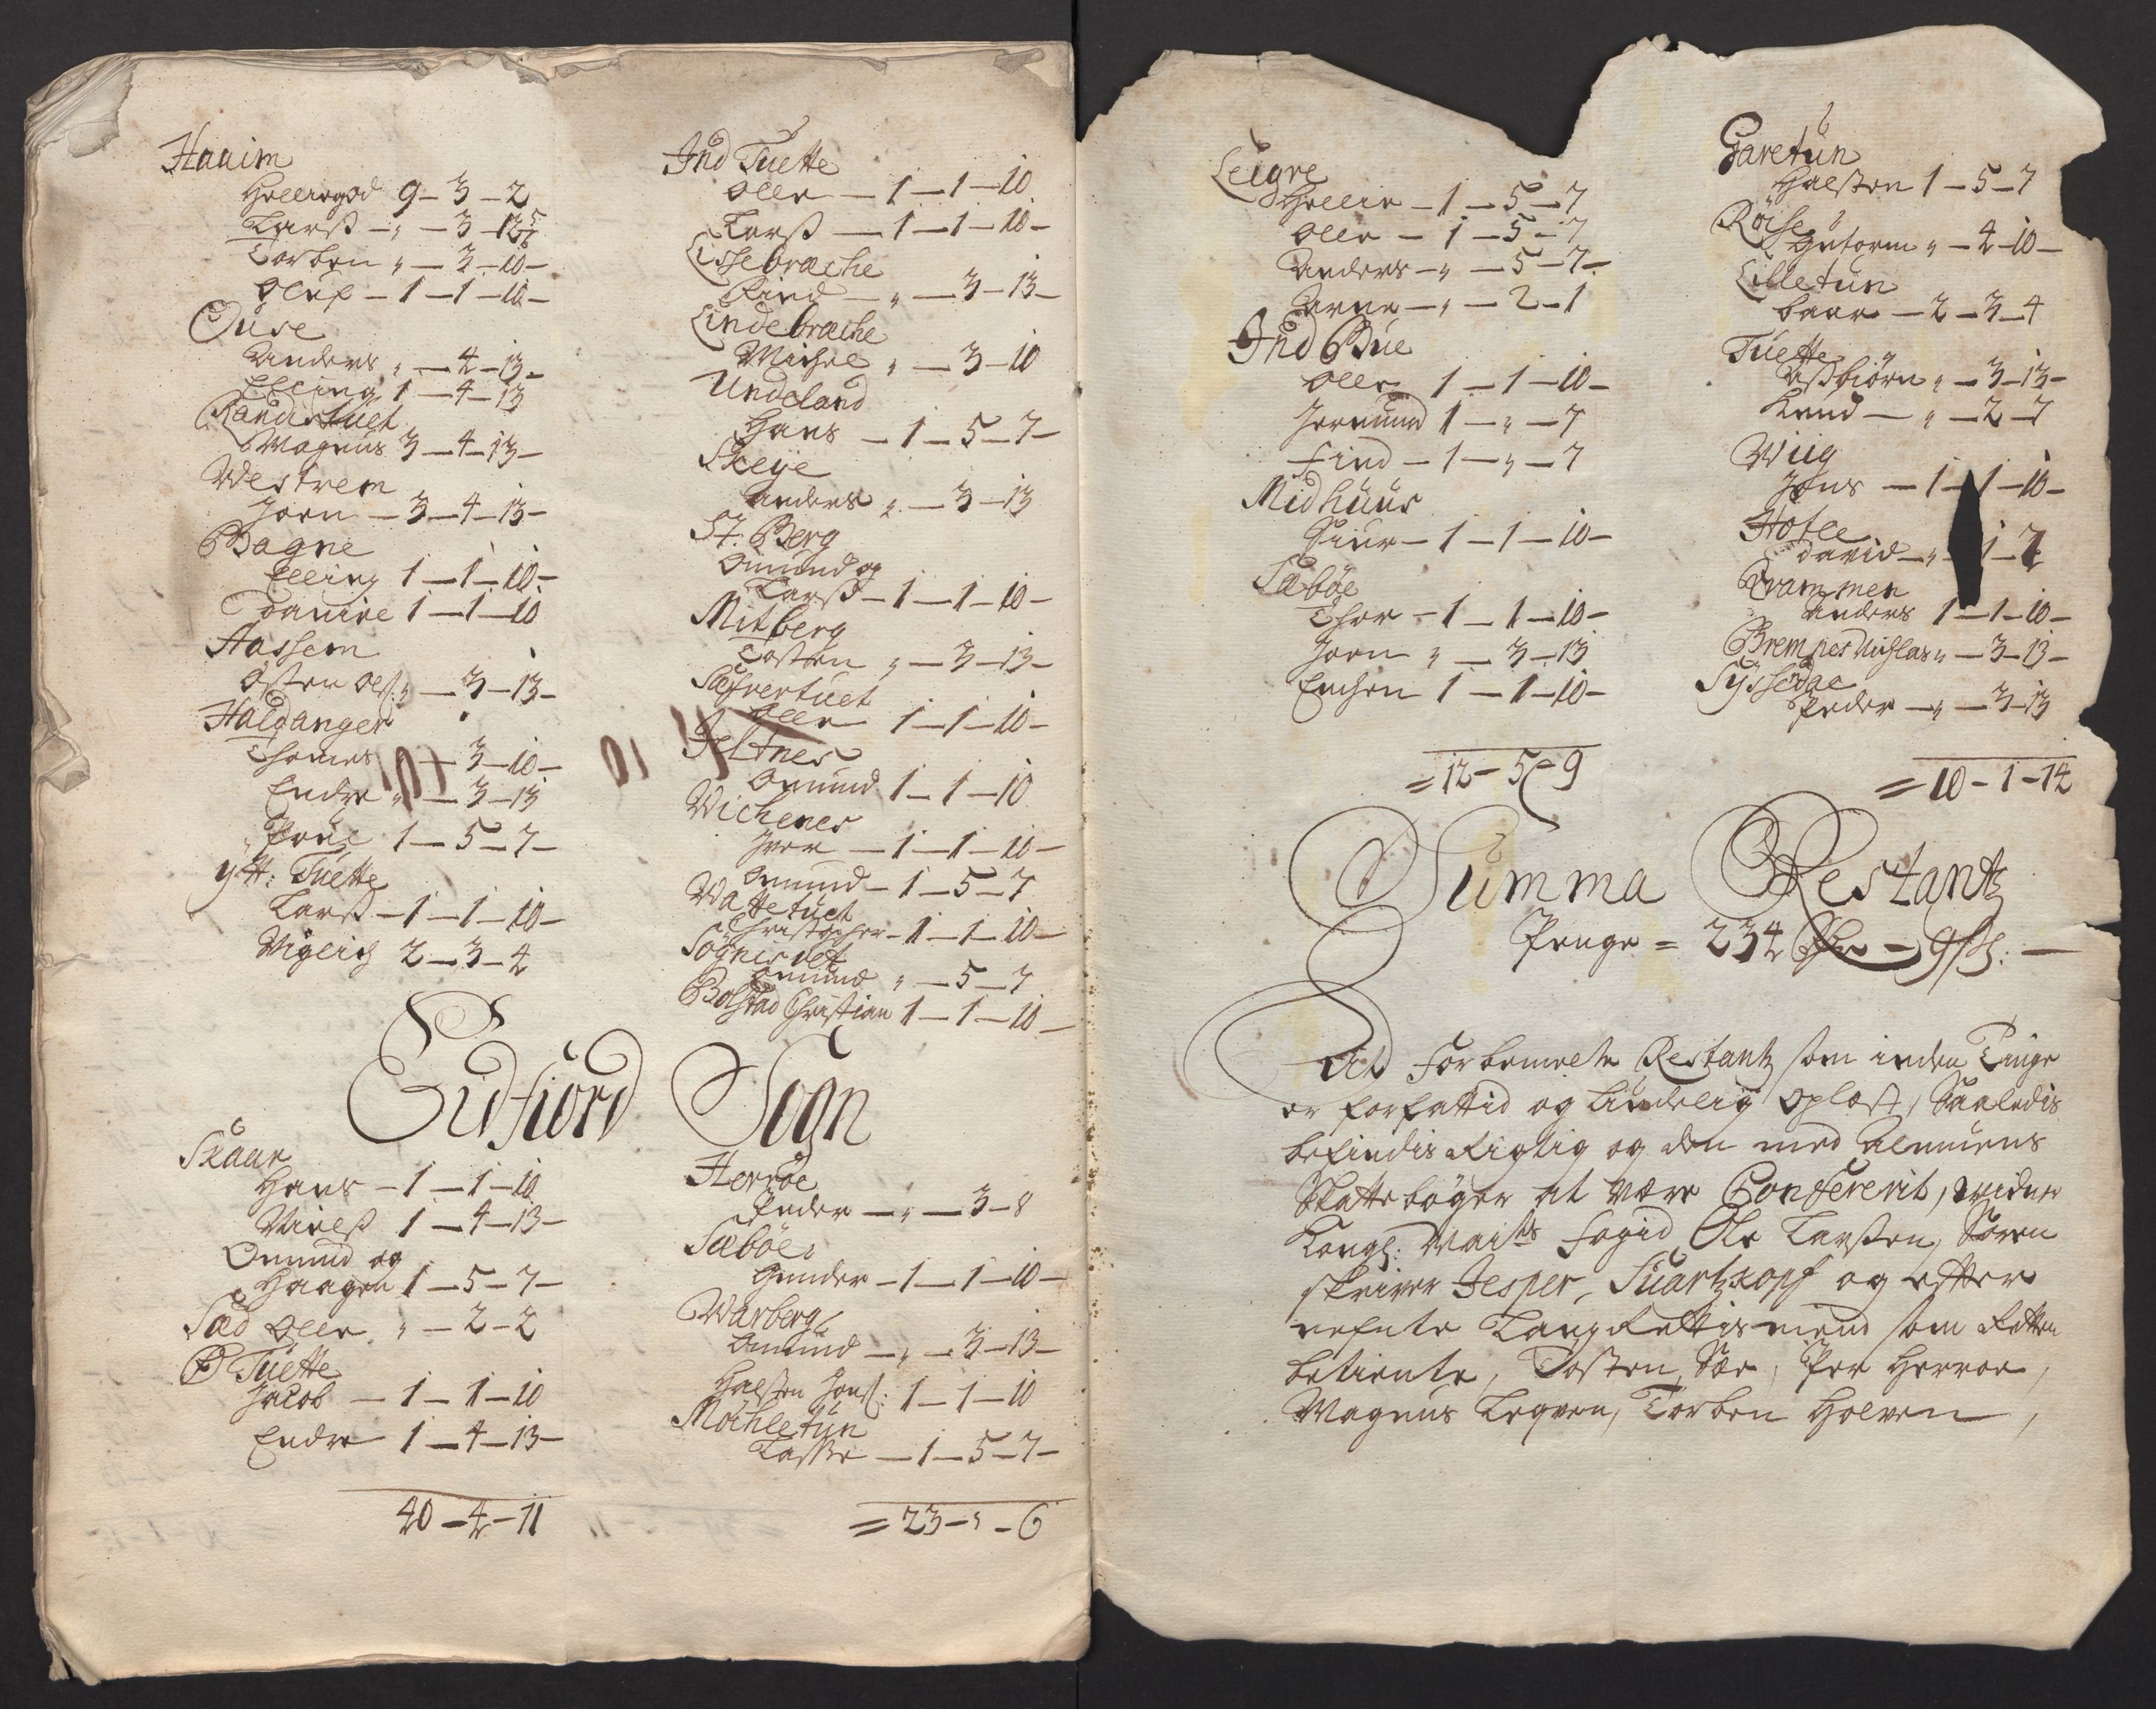 Haaim
Hellergod 9 – 3 – 2
Larß – „ – 3 – 12
Torben „ – 3 – 10 –
Oluf – 1 – 1 – 10 –
Ouse
Anders „ – 4 – 13 –
Elling 1 – 4 – 13
Randistuet
Magnus 3 – 4 – 13 –
Westrem
Joen – 3 – 4 – 13 –
Bagne
Elling 1 – 1 – 10 –
1 – 1 – 10
Hassem
Østen Ols: „ – 3 – 13 –
Haldanger
Thomes – 3 – 10 –
Endre „ – 3 – 13
Poul 1 – 5 – 7 –
Ytt: Tuette
Larß – 1 – 1 – 10 –
Viglich 2 – 3 – 4
Ind Tuette
Olle – 1 – 1 – 10
Larß – 1 – 1 – 10 –
Lissebræche
Find – „ – 3 – 13 –
Lindebræche
Michel „ – 3 – 10
Undeland
Hans – 1 – 5 – 7 –
Skeije
Anders „ – 3 – 13
St. Berg
Omund og
Larß – 1 – 1 – 10 –
Mitberg
Tosten „ – 3 – 13 –
Sæfvertuet
Olle 1 – 1 – 10 –
Jeltnes
Omund 1 – 1 – 10
Wichenes
Iver – 1 – 1 – 10 –
Omund – 1 – 5 – 7
Wattetuet
Christopher – 1 – 1 – 10 –
Omund „ – 5 – 7
Bolstad Christian 1 – 1 – 10 –
Eidfiord Sogn
Skaar
Hans – 1 – 1 – 10
Nielß 1 – 4 – 13 –
Omund og
Haagen 1 – 5 – 7 –
Sæd Olle „ – 2 – 2
Tuette
Jacob – 1 – 1 – 10
Endre 1 – 4 – 13 –
40 – 4 – 11
Herröe
Peder – „ – 3 – 8
Sæböe
Gunder – 1 – 1 – 10 –
Warberg
Omund – „ – 3 – 13 –
Halsten Jons: 1 – 1 – 10
Möchletun
Lasse – 1 – 5 – 7 –
= 23 – „ – 6
Leigre
Hellie – 1 – 5 – 7
Olle – 1 – 5 – 7
Anders – „ – 5 – 7 –
Arne – „ – 2 – 1
Ind Bue
Olle 1 – 1 – 10 –
Jermund 1 – „ – 7
Find – 1 – „ – 7
Midhuus
Siur – 1 – 1 – 10 –
Sæböe
Thor – 1 – 1 – 10 –
Joen „ – 3 – 13
Enchen 1 – 1 – 10 –
= 12 – 5 – 9
Garetun
Halsten 1 – 5 – 7
Röise
Gutorm „ – 4 – 10 –
Lilletun
Baar – 2 – 3 – 4
Tuette
Asbiörn „ – 3 – 13 –
Knud – „ – 2 – 7
Wiig
Jens – 1 – 1 – 10 –
Hotle
David – „ – 1 – 7
Trammen
Anders 1 – 1 – 10 –
Brempes Nichlas „ – 3 – 13 –
Syssedal
Peder – „ – 3 – 13
= 10 – 1 – 14
Summa Restantz
Penge = 234 Dlr – 9 ß: –
At Forbemelte Restantz som inden Tinge
er forfattid og liudelig Oplæst, Saaledis
befindis Rigtig og den med Almuens
Skattebøger at være Confererit, vidner
Kongl: Maits fogid Ole Larßen, Soren
skriver Jesper Suartzkopf og effter
nefnte LaugRettismend som Retten
betiente, Tosten Sæe, Per Herroe,
Magnus Legren, Torben Holven,